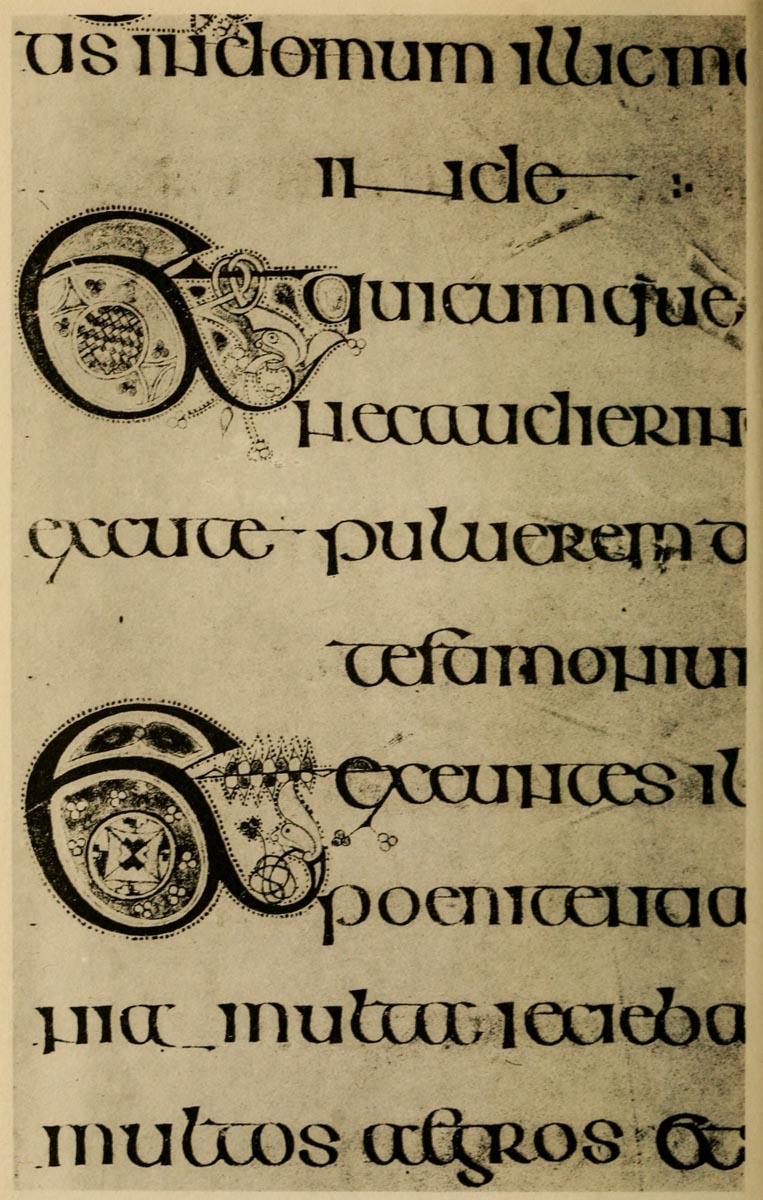 tis in domum illic ma
inde
Et quicumque
nec audierin
excute puluerem d
testimoniu
Et exeuntes il
poenitentia
nia multa iecieba
multos aegros et